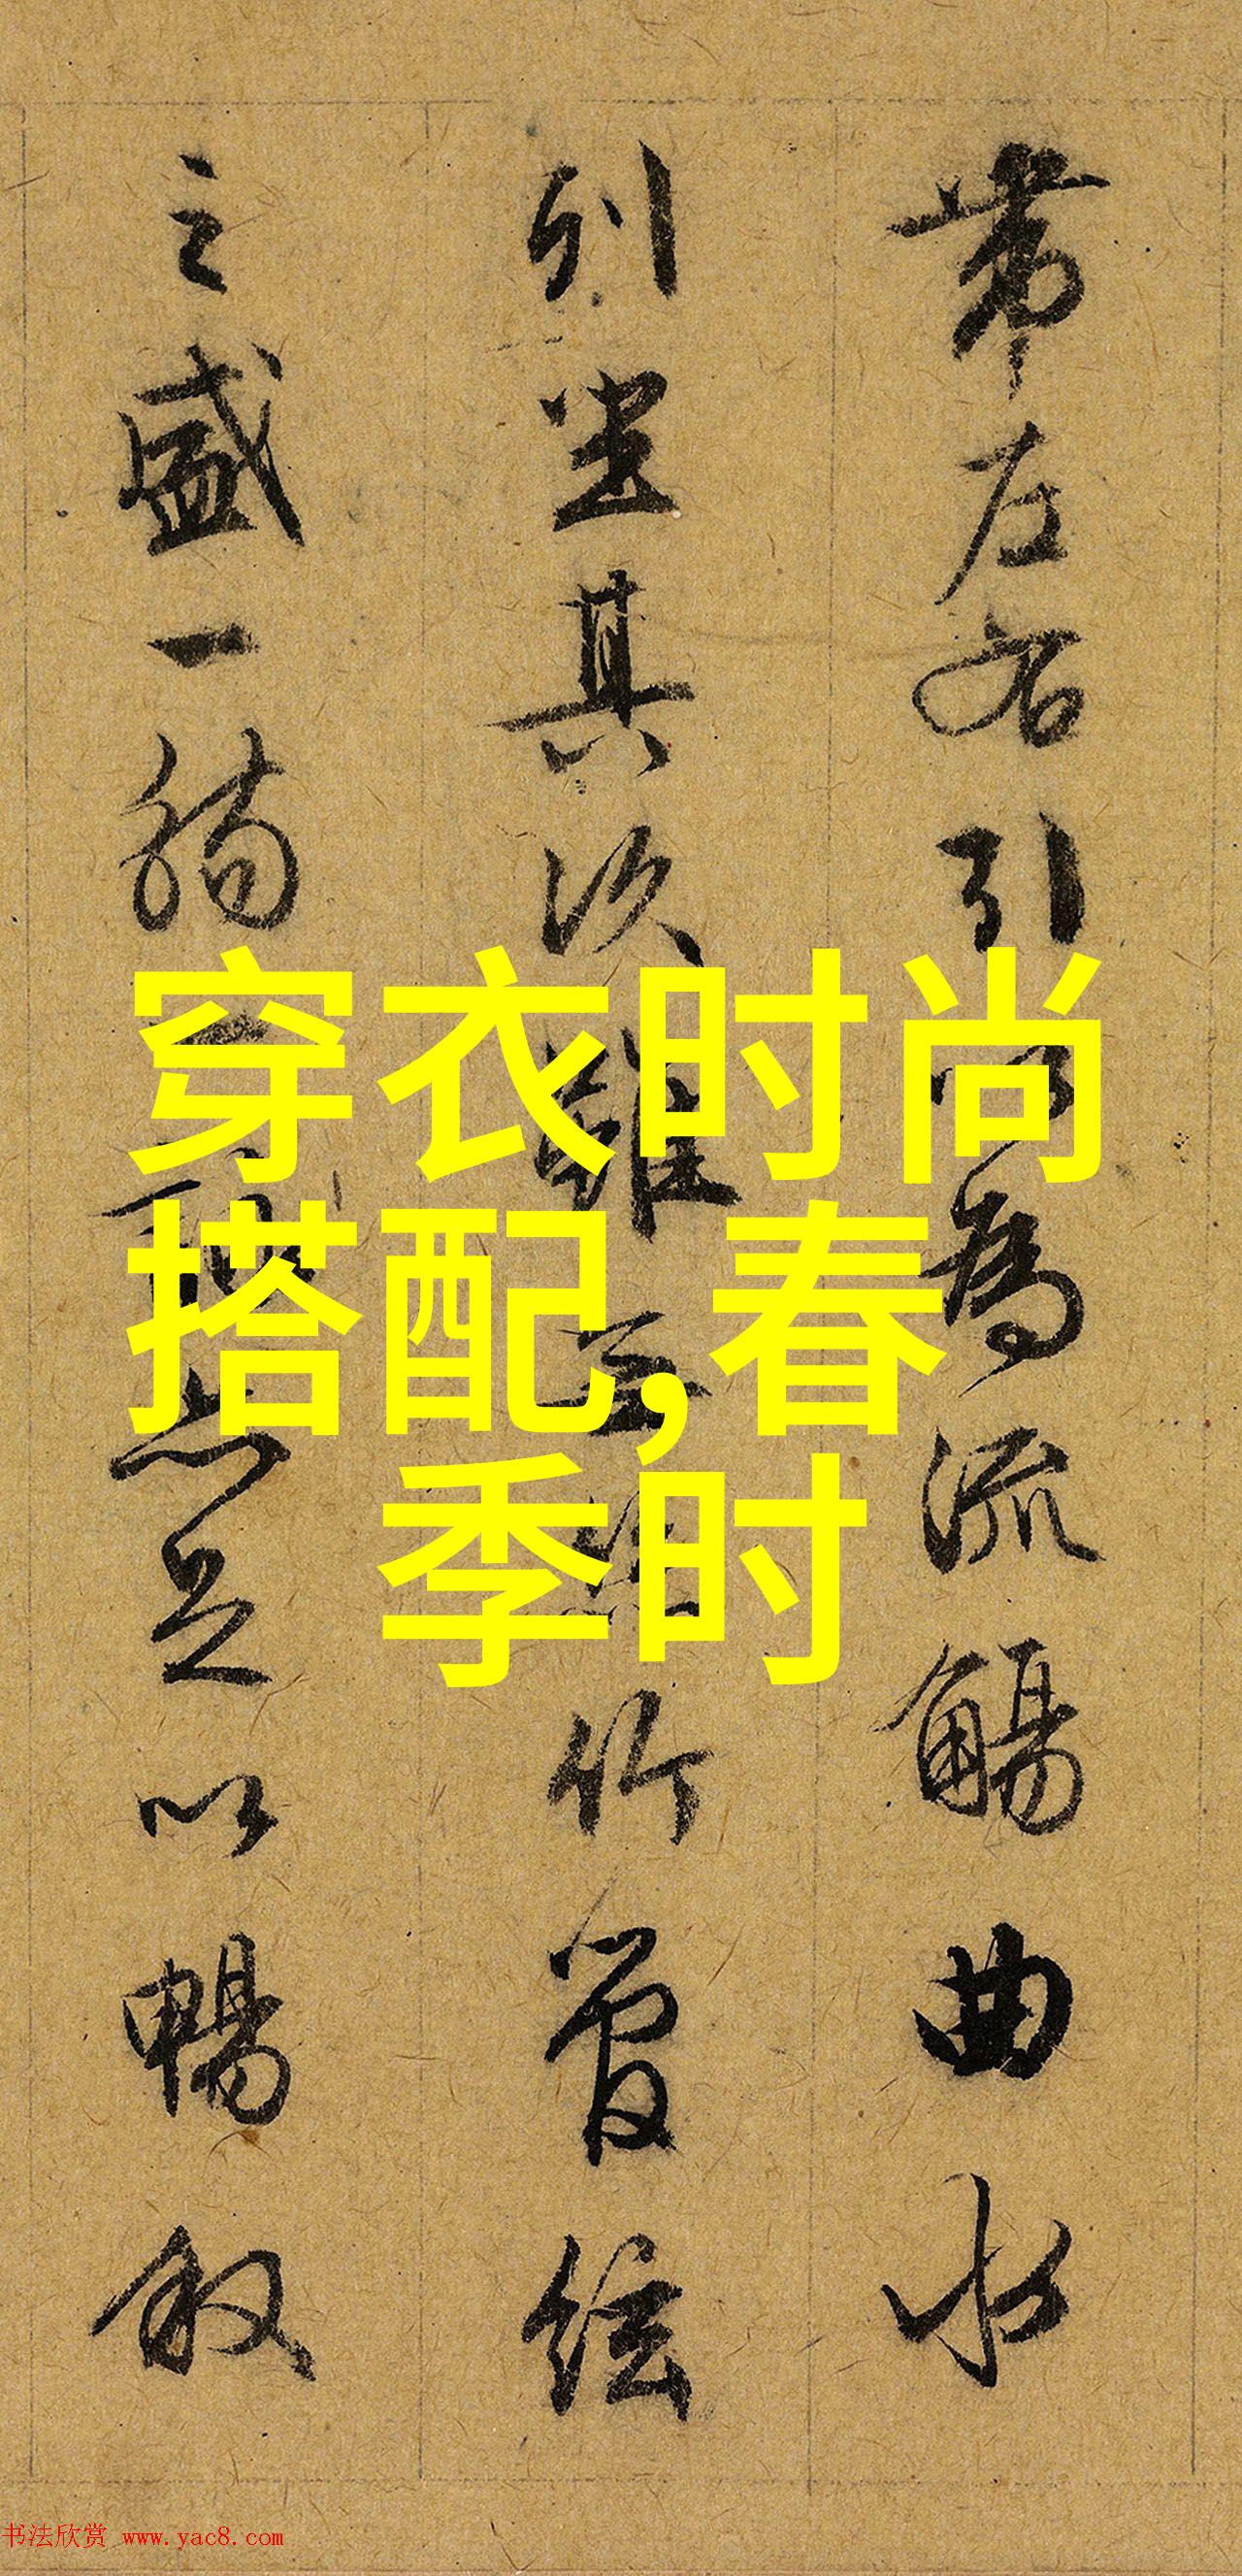 带左右引以為流觴曲水
列坐其次雖云絲竹管絃
之盛一觴一詠亦足以暢叙
穿衣时尚
搭配,春
季时
书法欣赏 www.yac8.com